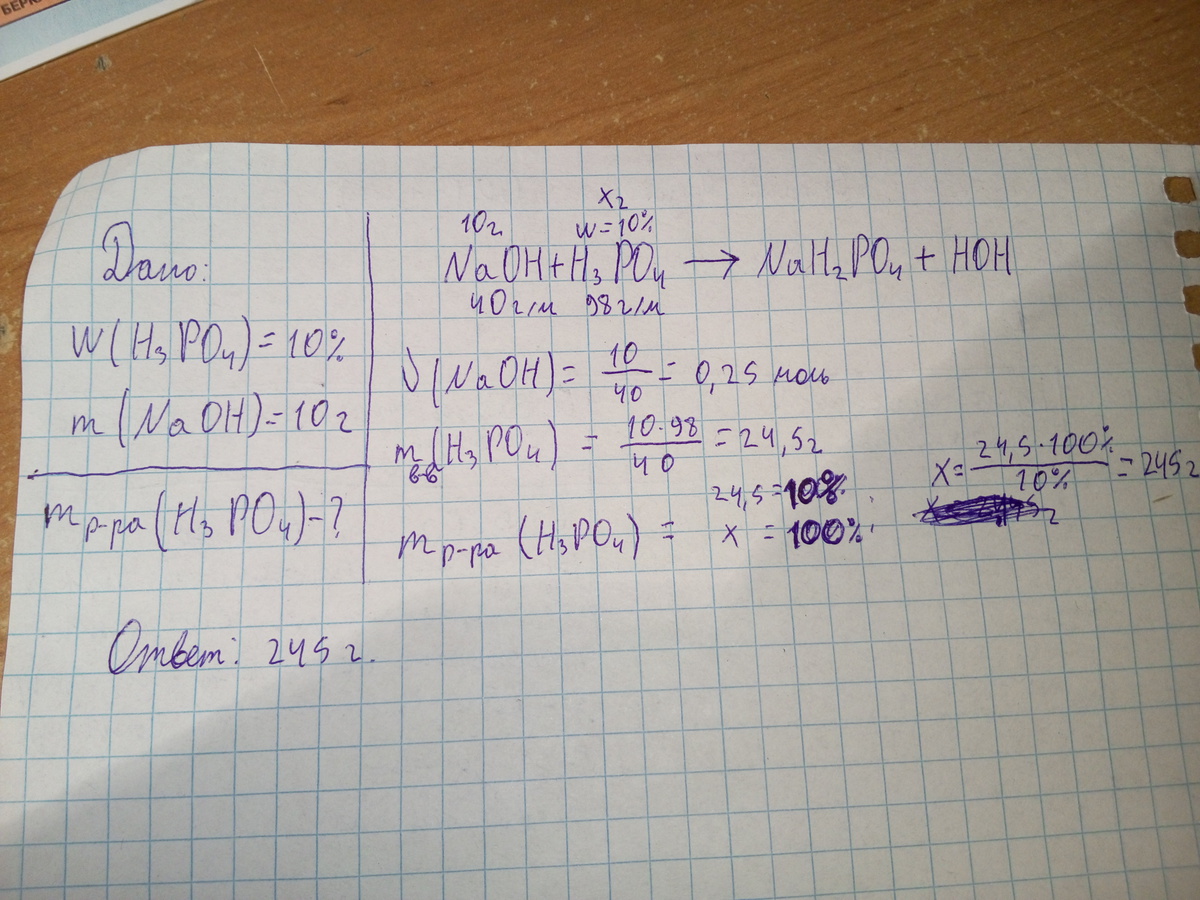 БЕРК
Дано:
W(H₃PO₄)=10%
m(NaOH)=10г
mр-ра(H₃PO₄)-?
xг
10г w=10%
NaOH+H₃PO₄ → NaH₂PO₄ + HOH
40г/м 98г/м
ν(NaOH)= 10/40 = 0,25 моль
mв-ва(H₃PO₄) = 10·98/40 = 24,5г
24,5=10%
mр-ра(H₃PO₄) = x = 100%
x= 24,5·100%/10% = 245г
Ответ: 245г.